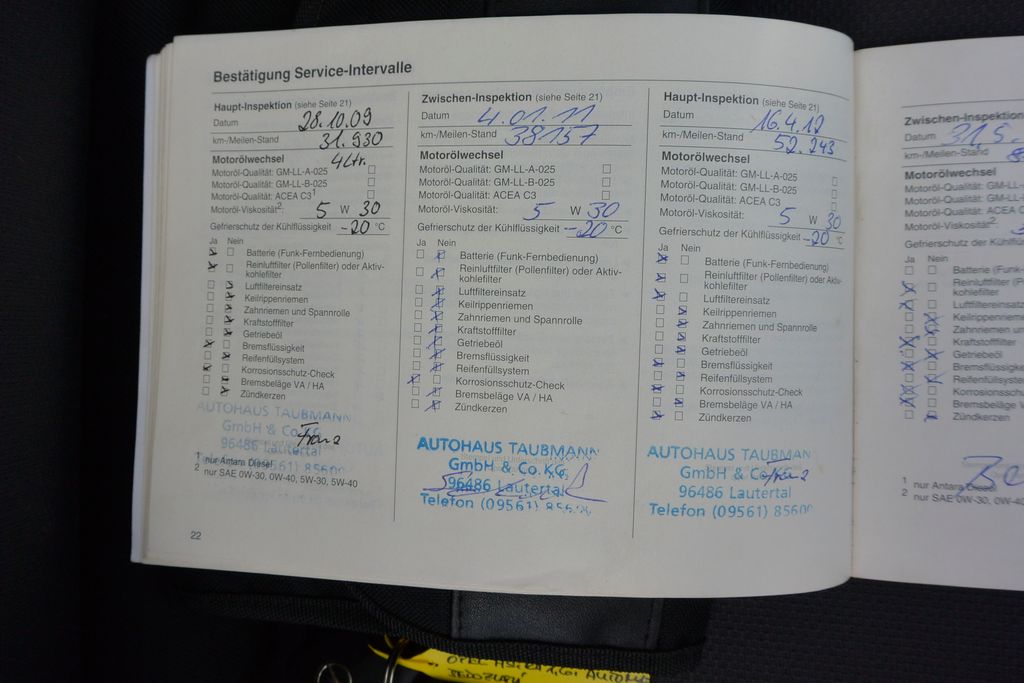 Bestätigung Service-Intervalle
Haupt-Inspektion (siehe Seite 21)
Datum 28.10.09
km-/Meilen-Stand 31.930
Motorölwechsel 4Ltr.
Motoröl-Qualität: GM-LL-A-025
Motoröl-Qualität: GM-LL-B-025
Motoröl-Qualität: ACEA C3¹
Motoröl-Viskosität²: 5 W 30
Gefrierschutz der Kühlflüssigkeit -20 °C
Ja Nein
Batterie (Funk-Fernbedienung)
Reinluftfilter (Pollenfilter) oder Aktiv-
kohlefilter
Luftfiltereinsatz
Keilrippenriemen
Zahnriemen und Spannrolle
Kraftstofffilter
Getriebeöl
Bremsflüssigkeit
Reifenfüllsystem
Korrosionsschutz-Check
Bremsbeläge VA / HA
Zündkerzen
AUTOHAUS TAUBMANN
GmbH & Co. KG
96486 Lautertal
(09561) 85600
1 nur Antara Diesel
2 nur SAE 0W-30, 0W-40, 5W-30, 5W-40
22
Zwischen-Inspektion (siehe Seite 21)
Datum 4.01.11
km-/Meilen-Stand 38157
Motorölwechsel
Motoröl-Qualität: GM-LL-A-025
Motoröl-Qualität: GM-LL-B-025
Motoröl-Qualität: ACEA C3
Motoröl-Viskosität: 5 W 30
Gefrierschutz der Kühlflüssigkeit -20 °C
Ja Nein
Batterie (Funk-Fernbedienung)
Reinluftfilter (Pollenfilter) oder Aktiv-
kohlefilter
Luftfiltereinsatz
Keilrippenriemen
Zahnriemen und Spannrolle
Kraftstofffilter
Getriebeöl
Bremsflüssigkeit
Reifenfüllsystem
Korrosionsschutz-Check
Bremsbeläge VA / HA
Zündkerzen
AUTOHAUS TAUBMANN
GmbH & Co. KG
96486 Lautertal
Telefon (09561) 856
Haupt-Inspektion (siehe Seite 21)
Datum 16.4.12
km-/Meilen-Stand 52.243
Motorölwechsel
Motoröl-Qualität: GM-LL-A-025
Motoröl-Qualität: GM-LL-B-025
Motoröl-Qualität: ACEA C3
Motoröl-Viskosität: 5 W 30
Gefrierschutz der Kühlflüssigkeit -20 °C
Ja Nein
Batterie (Funk-Fernbedienung)
Reinluftfilter (Pollenfilter) oder Aktiv-
kohlefilter
Luftfiltereinsatz
Keilrippenriemen
Zahnriemen und Spannrolle
Kraftstofffilter
Getriebeöl
Bremsflüssigkeit
Reifenfüllsystem
Korrosionsschutz-Check
Bremsbeläge VA / HA
Zündkerzen
AUTOHAUS TAUBMAN
GmbH & Co
96486 Lautertal
Telefon (09561) 85600
Zwischen-Inspektion
Datum 31.5.
km-/Meilen-Stand
Motorölwechsel
Motoröl-Qualität: GM-LL-
Motoröl-Qualität: GM-LL-
Motoröl-Qualität: ACEA C
Motoröl-Viskosität²:
Gefrierschutz der Kühlflüss
Ja Nein
Batterie (Funk-F
Reinluftfilter (P
kohlefilter
Luftfiltereinsatz
Keilrippenriemen
Zahnriemen un
Kraftstofffilter
Getriebeöl
Bremsflüssigke
Reifenfüllsyste
Korrosionsschu
Bremsbeläge V
Zündkerzen
1 nur Antara Diesel
2 nur SAE 0W-30, 0W-40
OPEL